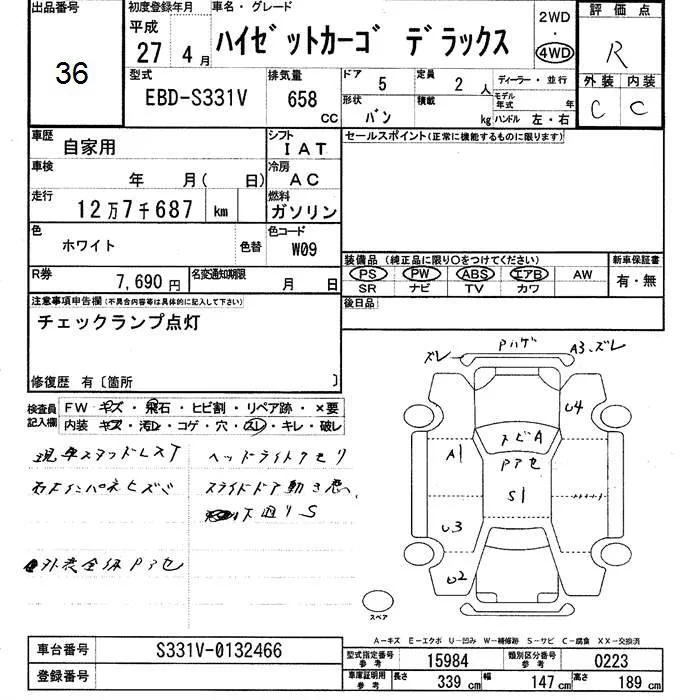 出品番号
36
初度登録年月
平成
27 4月
車名・グレード
ハイゼットカーゴ デラックス
2WD
・
4WD
評価点
R
外装 内装
C C
型式
EBD-S331V
排気量
658
CC
ドア 5
定員 2人
形状 バン
積載 kg
ディーラー・並行
モデル年式 年
ハンドル 左・右
車歴
自家用
シフト
IAT
セールスポイント(正常に機能するものに限ります)
車検
年 月( 日)
冷房
AC
走行
12万7千687 km
燃料
ガソリン
色
ホワイト
色替
色コード
W09
装備品(純正品に限り○をつけてください)
新車保証書
PS PW ABS エアB AW
SR ナビ TV カワ
有・無
R券
7,690円
名変通知期限
月 日
後日品
注意事項申告欄(不具合内容等は具体的に記入して下さい)
チェックランプ点灯
修復歴 有〔箇所 〕
検査員記入欄
FW キズ・飛石・ヒビ割・リペア跡・×要
内装 キズ・汚れ・コゲ・穴・スレ・キレ・破レ
現車スタッドレスT
ヘッドライトクモリ
スライドドア動き悪い
下廻りS
外装全体Pアセ
ズレ
Pハゲ
A3.ズレ
U4
トビA
A1
Pアセ
S1
U3
U2
スペア
A-キズ E-エクボ U-凹み W-補修跡 S-サビ C-腐食 XX-交換済
車台番号
S331V-0132466
登録番号
型式指定番号 参考
15984
類別区分番号 参考
0223
車庫証明用 参考
長さ 339 cm
幅 147 cm
高さ 189 cm